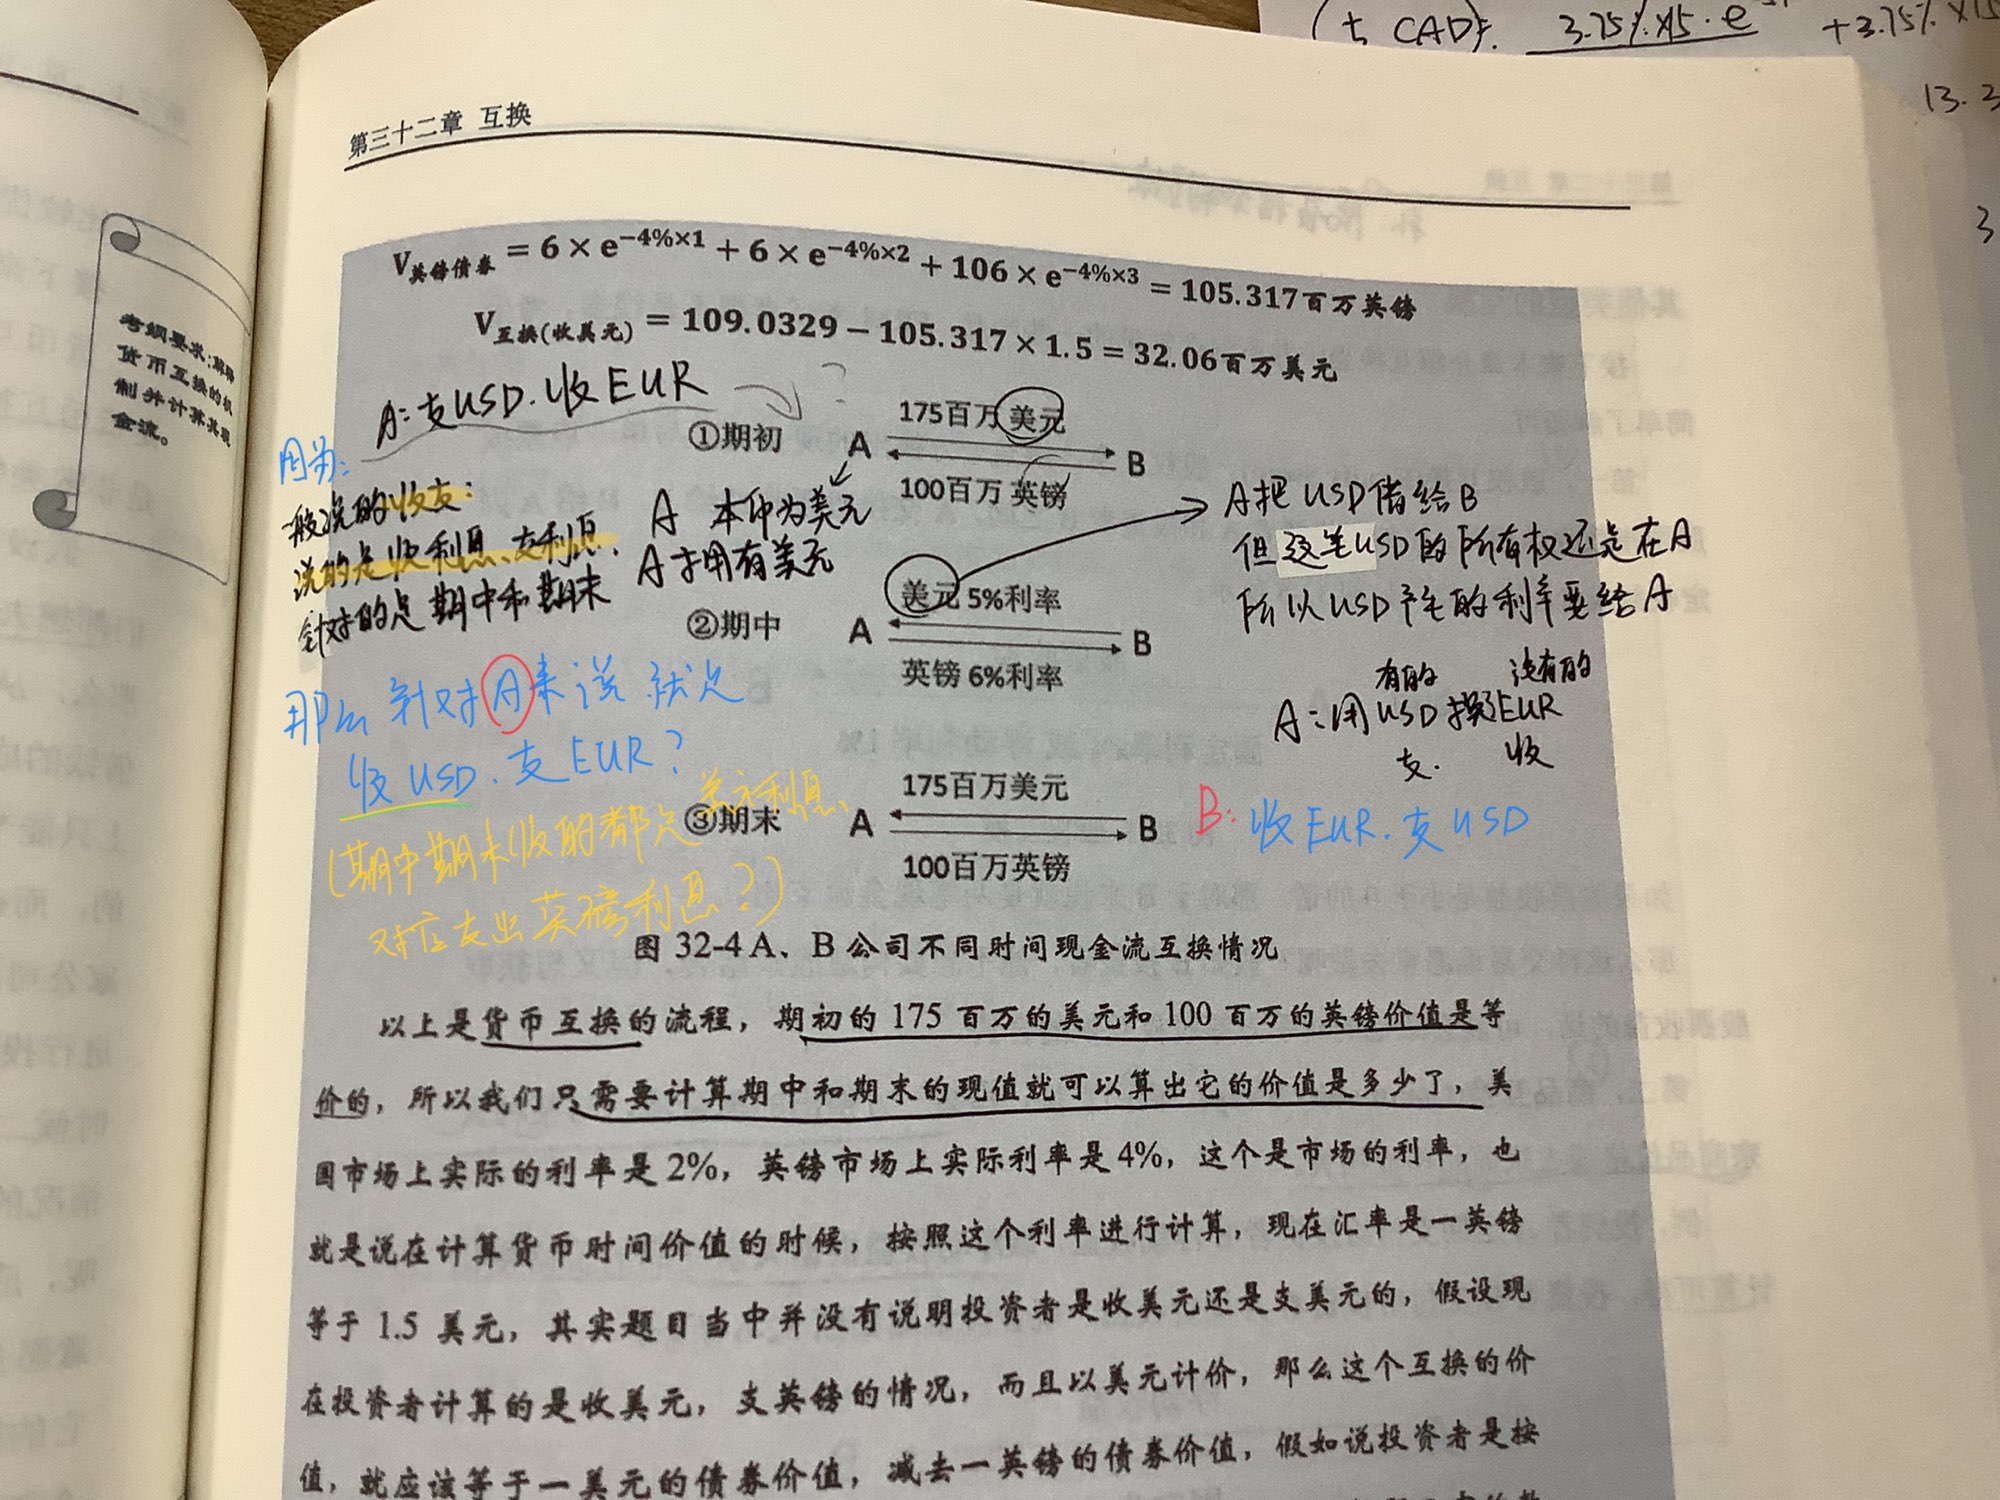 (支 CAD): 3.75%×15·e + 3.75%×15
13.3
3
第三十二章 互换
考纲要求:解释
货币互换的机
制并计算其现
金流。
V英镑债券 = 6 × e^{-4%×1} + 6 × e^{-4%×2} + 106 × e^{-4%×3} = 105.317百万英镑
V互换(收美元) = 109.0329 − 105.317 × 1.5 = 32.06百万美元
A:支USD.收EUR ?
①期初 A B
175百万美元
100百万英镑
因为:
一般说的收支:
说的是收利息、支利息、
针对的是期中和期末
A 本币为美元
A才拥有美元
A把USD借给B
但这笔USD的所有权还是在A
所以USD产生的利率要给A
②期中 A B
美元 5%利率
英镑 6%利率
那么针对A来说就是
收USD.支EUR?
(期中期末收的都是美元利息、
对应支出英镑利息?)
有的 没有的
A:用USD换EUR
支. 收
③期末 A B
175百万美元
100百万英镑
B:收EUR.支USD
图 32-4 A、B 公司不同时间现金流互换情况
以上是货币互换的流程，期初的 175 百万的美元和 100 百万的英镑价值是等
价的，所以我们只需要计算期中和期末的现值就可以算出它的价值是多少了，美
国市场上实际的利率是 2%，英镑市场上实际利率是 4%，这个是市场的利率，也
就是说在计算货币时间价值的时候，按照这个利率进行计算，现在汇率是一英镑
等于 1.5 美元，其实题目当中并没有说明投资者是收美元还是支美元的，假设现
在投资者计算的是收美元，支英镑的情况，而且以美元计价，那么这个互换的价
值，就应该等于一美元的债券价值，减去一英镑的债券价值，假如说投资者是按